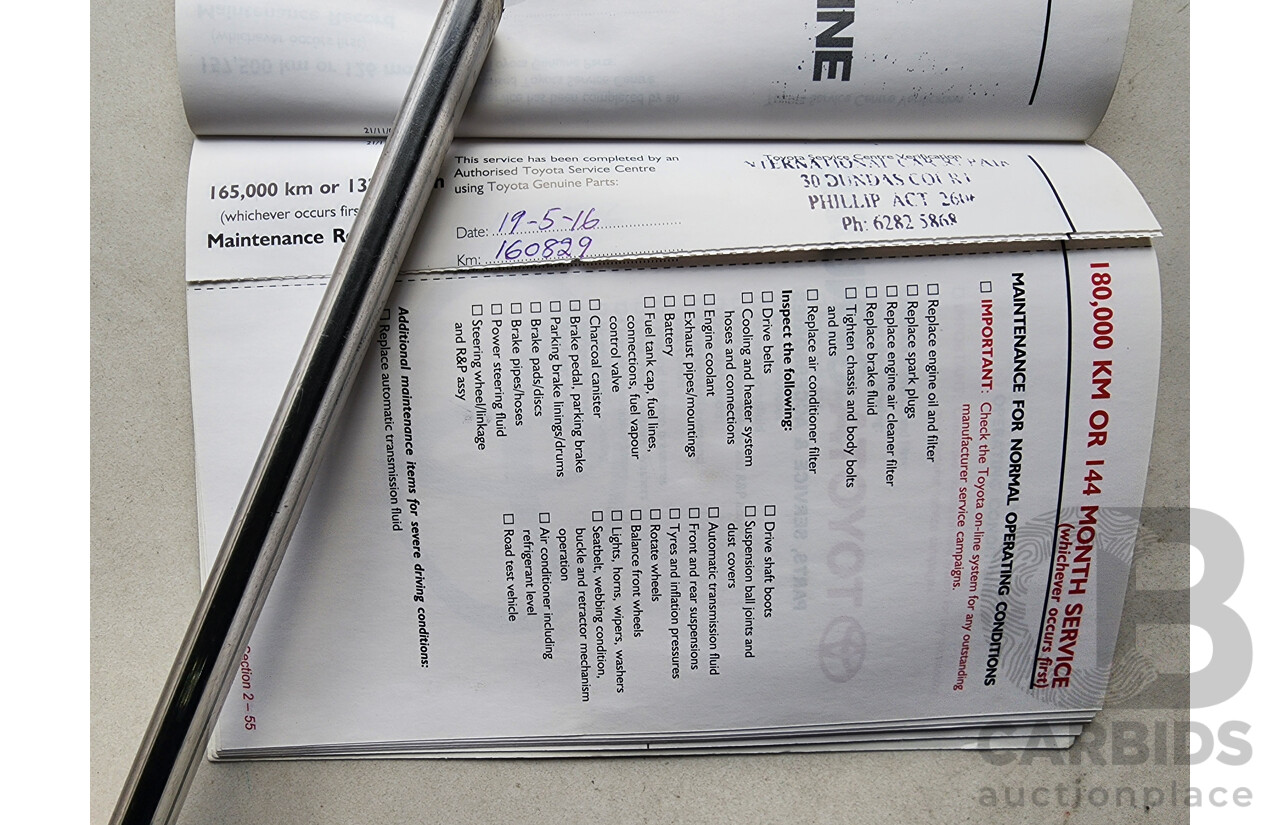 INE
165,000 km or
(whichever occurs
Maintenance
This service has been completed by an
Authorised Toyota Service Centre
using Toyota Genuine Parts:
Date: 19-5-16
Km: 160829
Toyota Service Centre Verification
30 DUNDAS COURT
PHILLIP ACT
Ph: 6282 5868
180,000 KM OR 144 MONTH SERVICE
(whichever occurs first)
MAINTENANCE FOR NORMAL OPERATING CONDITIONS
☐ IMPORTANT: Check the Toyota on-line system for any outstanding
manufacturer service campaigns.
☐ Replace engine oil and filter
☐ Replace spark plugs
☐ Replace engine air cleaner filter
☐ Replace brake fluid
☐ Tighten chassis and body bolts
and nuts
☐ Replace air conditioner filter
Inspect the following:
☐ Drive belts
☐ Cooling and heater system
hoses and connections
☐ Engine coolant
☐ Exhaust pipes/mountings
☐ Battery
☐ Fuel tank cap, fuel lines,
connections, fuel vapour
control valve
☐ Charcoal canister
☐ Brake pedal, parking brake
☐ Parking brake linings/drums
☐ Brake pads/discs
☐ Brake pipes/hoses
☐ Power steering fluid
☐ Steering wheel/linkage
and R&P assy
☐ Drive shaft boots
☐ Suspension ball joints and
dust covers
☐ Automatic transmission fluid
☐ Front and rear suspensions
☐ Tyres and inflation pressures
☐ Rotate wheels
☐ Balance front wheels
☐ Lights, horns, wipers, washers
☐ Seatbelt, webbing condition,
buckle and retractor mechanism
operation
☐ Air conditioner including
refrigerant level
☐ Road test vehicle
Additional maintenance items for severe driving conditions:
☐ Replace automatic transmission fluid
Section 2 – 55
CARBIDS
auctionplace